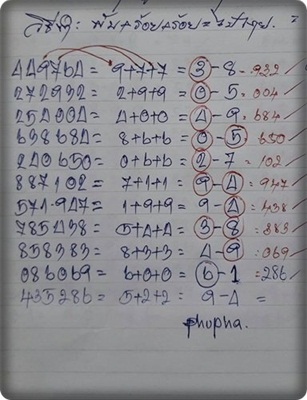 พัน+ร้อย+ร้อย =
449764 = 9+7+7 = 3-8 = 932
272932 = 2+9+9 = 0-5 = 004
254004 = 4+0+0 = 4-9 = 684
698684 = 8+6+6 = 0-5 = 650
240650 = 0+6+6 = 2-7 = 102
887102 = 7+1+1 = 9-4 = 947
571947 = 1+9+9 = 9-4 = 438
785438 = 5+4+4 = 3-8 = 383
858383 = 8+3+3 = 4-9 = 069
086069 = 6+0+0 = 6-1 = 286
435286 = 5+2+2 = 9-4 =
phupha.